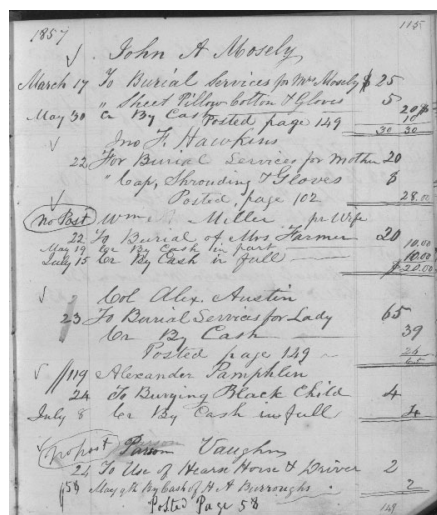 1857 115
John A Mosely
March 17 To Burial Services for Mrs Mosely $ 25
" Sheet Pillow Cotton & Gloves 5
May 30 Cr By Cash 20
Posted page 149 30 30
Jno F. Hawkins
22 For Burial Services for Mother 20
" Cap, Shrouding & Gloves 8
Posted, page 102 28.00
No Post Wm Miller pr Wife
22 To Burial of Mrs Farmer 20
May 19 Cr By Cash in part 10.00
July 15 Cr By Cash in full 10.00
$20.00
Col Alex. Austin
23 To Burial Services for Lady 65
Cr By Cash 39
Posted page 149
119 Alexander Pamphlin
24 To Burying Black Child 4
July 8 Cr By Cash in full 4
No post Parson Vaughn
24 To Use of Hearse Horse & Driver 2
58 May 9th By Cash of H A Burroughs 2
Posted Page 58 149